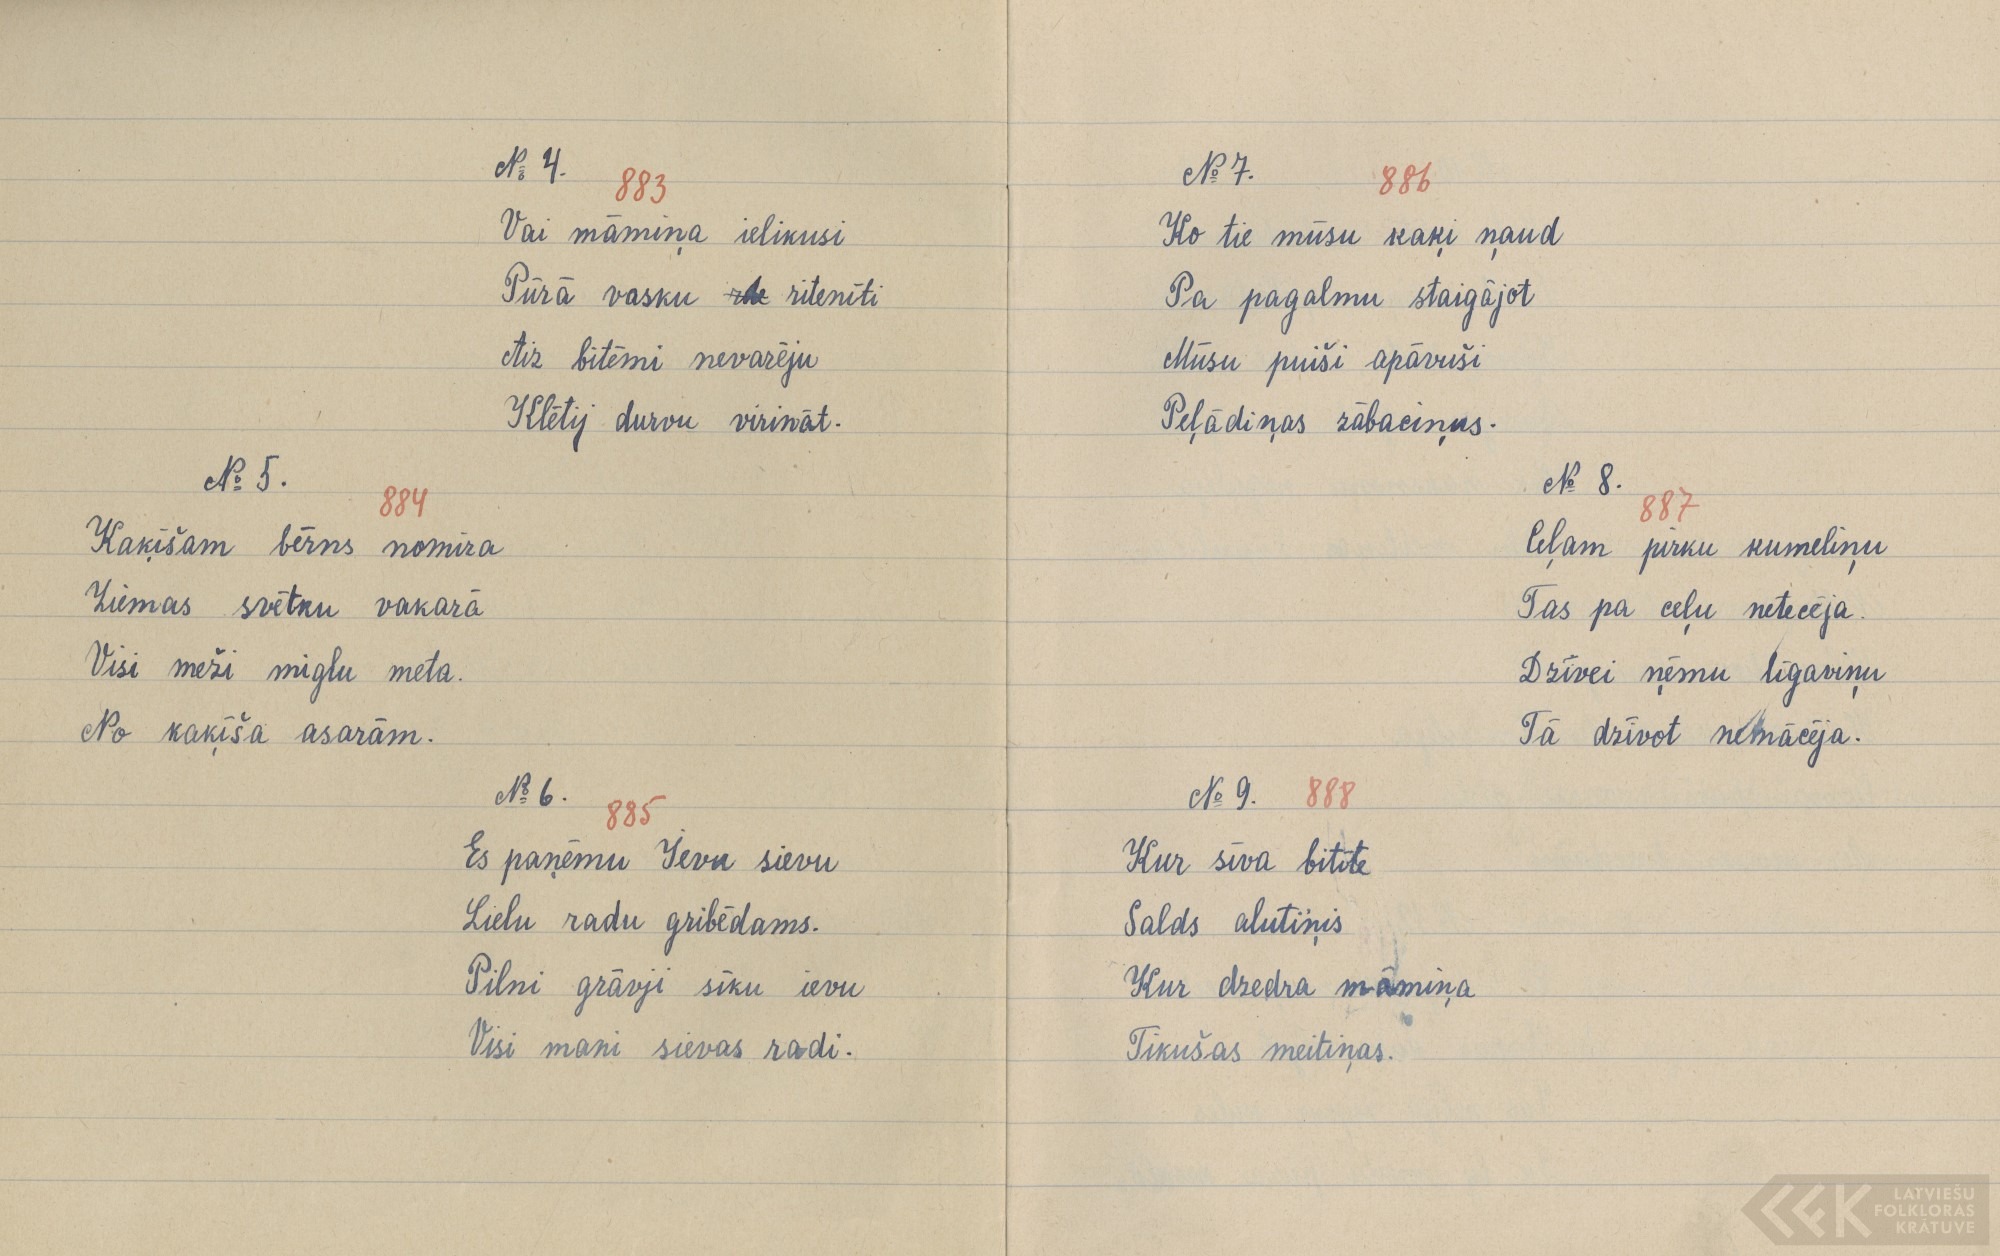 № 4.
883
Vai māmiņa ielikusi
Pūrā vasku ritenīti
Aiz bitēmi nevarēju
Klētij durvu virināt.
№ 5.
884
Kaķīšam bērns nomira
Ziemas svētku vakarā
Visi meži miglu meta.
No kaķīša asarām.
№ 6.
885
Es paņēmu Ievu sievu
Lielu radu gribēdams.
Pilni grāvji sīku ievu
Visi mani sievas radi.
№ 7.
886
Ko tie mūsu kaķi ņaud
Pa pagalmu staigājot
Mūsu puiši apāvuši
Peļādiņas zābaciņus.
№ 8.
887
Ceļam pirku kumeliņu
Tas pa ceļu netecēja.
Dzīvei ņēmu līgaviņu
Tā dzīvot nemācēja.
№ 9.
888
Kur sīva bitīte
Salds alutiņis
Kur dzedra māmiņa
Tikušas meitiņas.
LATVIEŠU
FOLKLORAS
KRĀTUVE